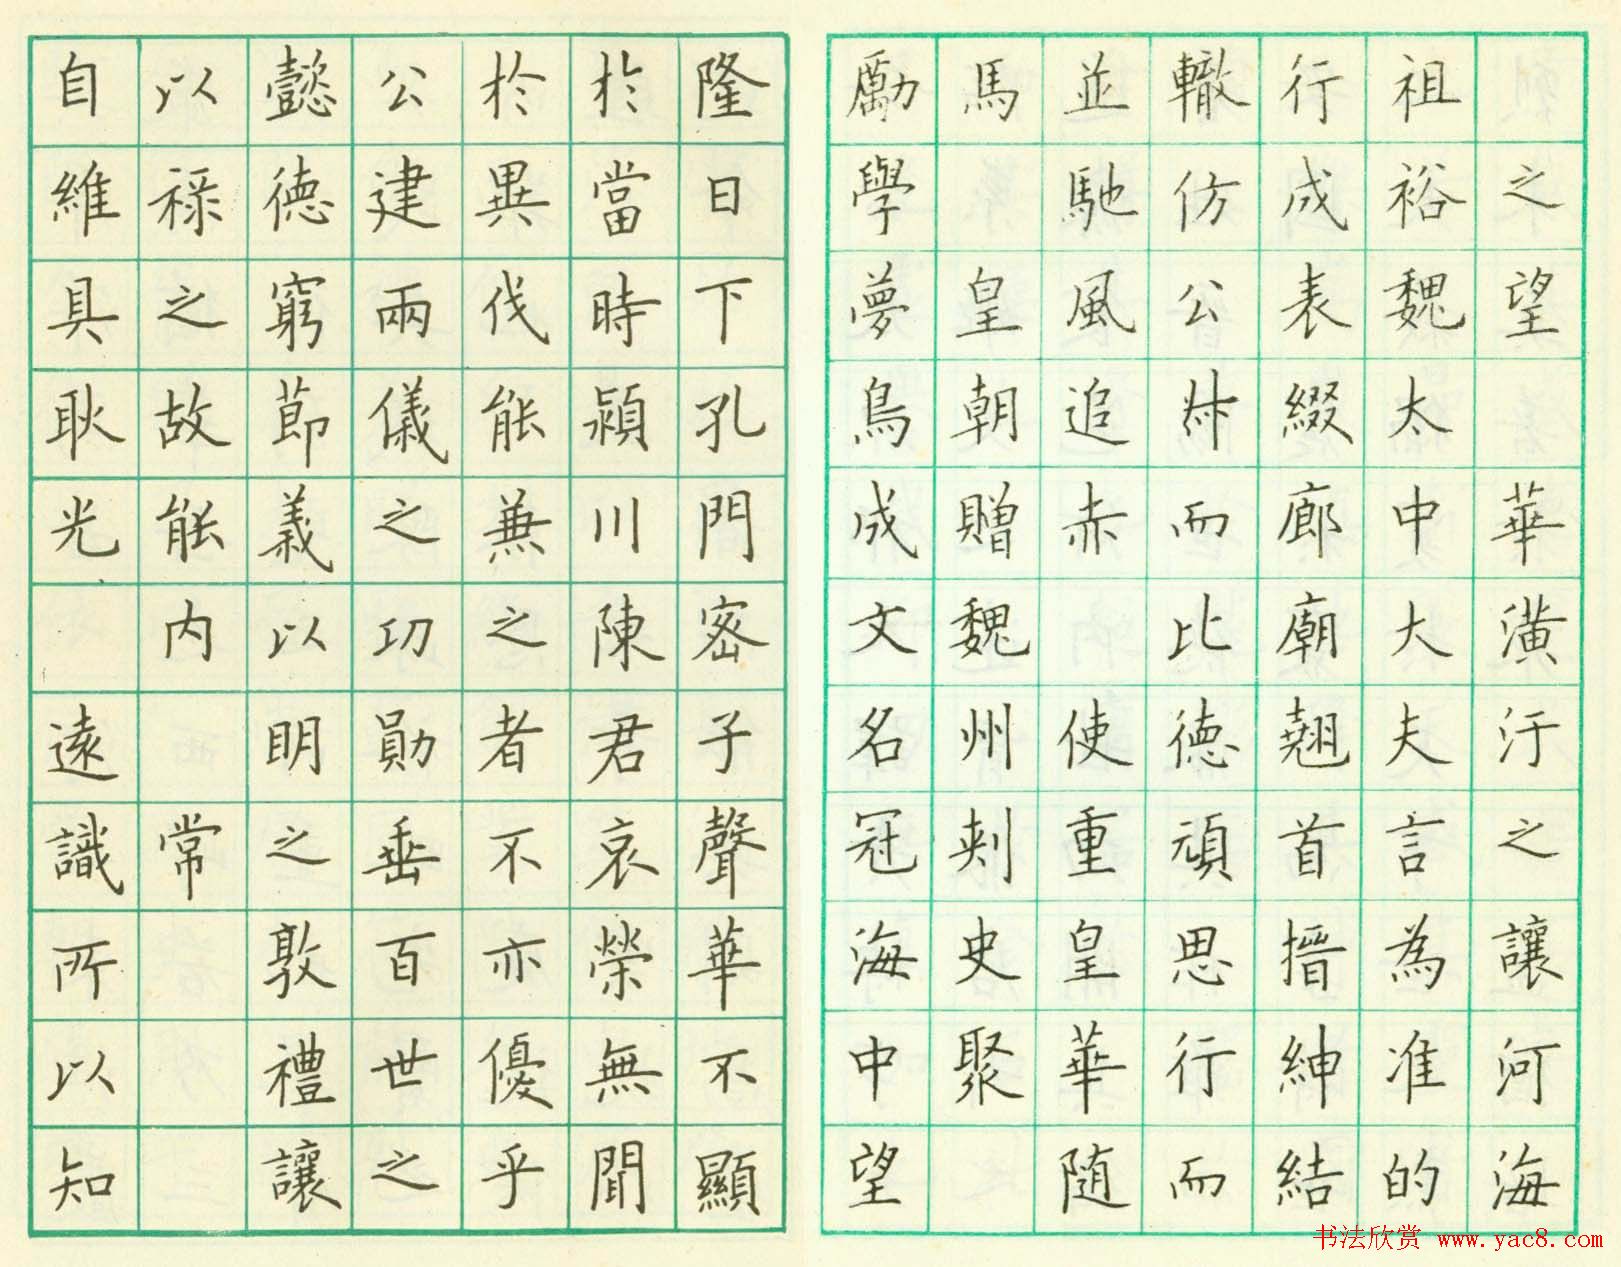 之望華潢汙之讓河海
祖裕魏太中大夫言為准的
行成表綴廊廟翹首搢紳結
轍仿公而比德頑思行而
並馳風追赤使重皇華随
馬皇朝贈魏州刺史聚
勵學夢鳥成文名冠海中望
隆日下孔門密子聲華不顯
於當時潁川陳君哀榮無聞
於異伐能兼之者不亦優乎
公建兩儀之功勛垂百世之
懿德窮節義以明之敦禮讓
以祿之故能内常
自維具耿光遠識所以知
书法欣赏 www.yac8.com